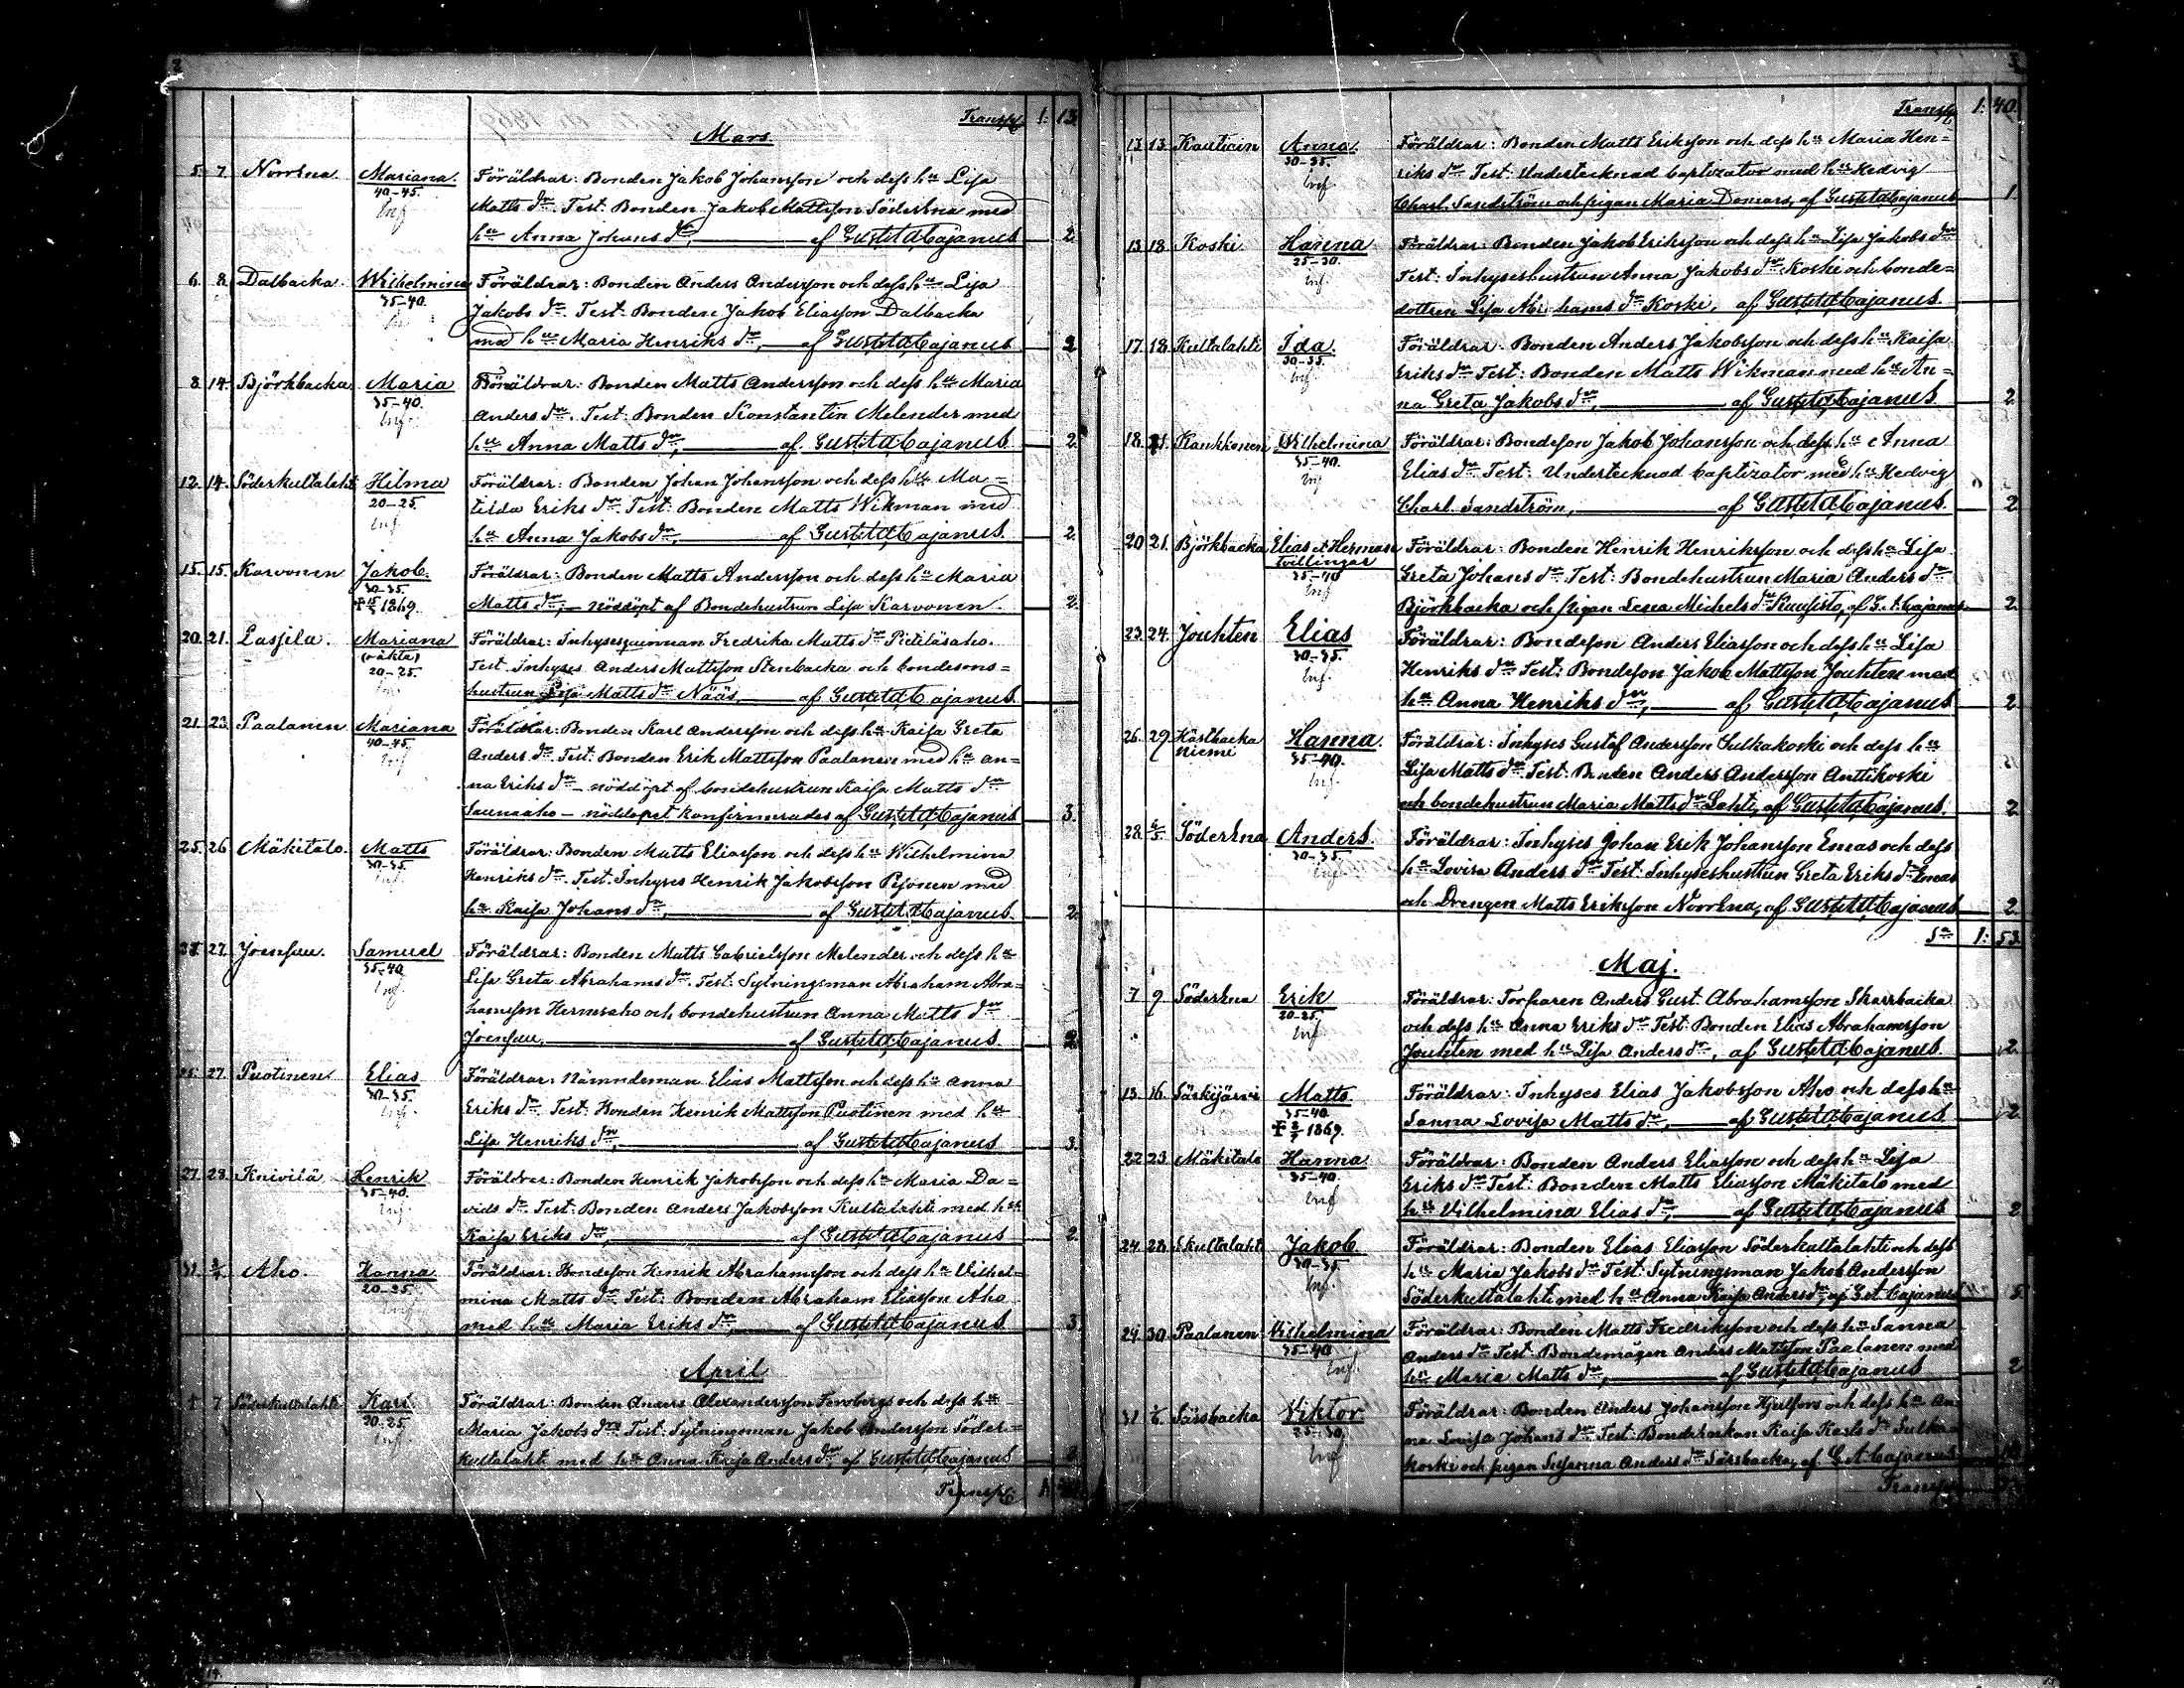 2
Transp. 1. 13
Mars.
5. 7. Norrena. Mariana. Föräldrar: Bonden Jakob Johansson och dess hu Lisa
40–45. Matts dr. Test. Bonden Jakob Mattsson Söderena med
hu Anna Johans dr, af Gust. A. Cajanus 2
6. 8. Dalbacka Wilhelmina Föräldrar: Bonden Anders Andersson och dess hu Lisa
35–40. Jakobs dr. Test. Bonden Jakob Eliasson Dalbacka
med hu Maria Henriks dr, af Gust. A. Cajanus 2
8. 14. Björkbacka Maria Föräldrar: Bonden Matts Andersson och dess hu Maria
35–40. Anders dr. Test: Bonden Konstantin Melender med
hu Anna Matts dr, af Gust. A. Cajanus 2.
12. 14. Söderkultalahti Hilma Föräldrar: Bonden Johan Johansson och dess hu Ma=
20–25. tilda Eriks dr. Test: Bonden Matts Wikman med
hu Anna Jakobs dr, af Gust. A. Cajanus. 2.
15. 15. Karvonen Jakob. Föräldrar: Bonden Matts Andersson och dess hu Maria
30–35.
1869. Matts dr, nöddöpt af Bondehustrun Lisa Karvonen. 2.
20. 21. Lassila. Mariana Föräldrar: Inhysesquinnan Fredrika Matts dr
(oäkta) Test. Inhyses Anders Mattsson Stenbacka och bondesons=
20–25. hustrun Lisa Matts dr Nääs, af Gust. A. Cajanus.
21. 23. Paalanen Mariana Föräldrar: Bonden Karl Andersson och dess hu Kaisa Greta
40–45. Anders dr. Test: Bonden Erik Mattsson Paalanen med hu An=
na Eriks dr – nöddöpt af bondehustrun Kaisa Matts dr
Saunaaho – nöddopet konfirmerades af Gust. A. Cajanus 3.
25. 26 Mäkitalo. Matts Föräldrar: Bonden Matts Eliasson och dess hu Wilhelmina
30–35. Henriks dr. Test. Inhyses Henrik Jakobsson Pesonen med
hu Kaisa Johans dr, af Gust. A. Cajanus. 2.
27. Joensuu. Samuel Föräldrar: Bonden Matts Gabrielsson Melender och dess hu
35–40 Lisa Greta Abrahams dr. Test: Sytningsman Abraham Abra=
hamsson och bondehustrun Anna Matts dr
Joensuu, af Gust. A. Cajanus. 2.
27. Puotinen Elias Föräldrar: Nämndeman Elias Mattsson och dess hu Anna
30–35. Eriks dr. Test: Bonden Henrik Mattsson Puotinen med hu
Lisa Henriks dr, af Gust. A. Cajanus 3.
27. 28. Knivilä Henrik Föräldrar: Bonden Henrik Jakobsson och dess hu Maria Da=
35–40. vids dr. Test: Bonden Anders Jakobsson Kultalahti med hu
Kaisa Eriks dr, af Gust. A. Cajanus 2.
31. Aho. Hanna Föräldrar: Bondeson Henrik Abrahamsson och dess hu Vilhel=
mina Matts dr. Test: Bonden Abraham Eliasson Aho
med hu Maria Eriks dr, af Gust. A. Cajanus 3.
April
7 Söderkultalahti Karl Föräldrar: Bonden Anders Alexandersson och dess hu
Maria Jakobs dr. Test: Sytningsman Jakob Andersson Söder=
kultalahti med hu Anna Kaisa Anders dr, af Gust. A. Cajanus
Transp.
3
Transp. 1. 40.
13 13. Anna. Föräldrar: Bonden Matts Eriksson och dess hu Maria Hen=
30–35. riks dr. Test: Undertecknad baptizator med hu Hedvig
Charl. Sandström och pigan Maria Domars, af Gust. A. Cajanus 1.
13 18. Koski. Hanna Föräldrar: Bonden Jakob Eriksson och dess hu Lisa Jakobs dr
25–30. Test: Inhyseshustrun Anna Jakobs dr Koski och bonde=
dottren Lisa Abrahams dr Koski, af Gust. A. Cajanus.
17. 18. Kultalahti Ida. Föräldrar: Bonden Anders Jakobsson och dess hu Kaisa
30–35. Eriks dr. Test: Bonden Matts Wikman med hu An=
na Greta Jakobs dr, af Gust. A. Cajanus. 2
18. 21. Kaukkonen Wilhelmina Föräldrar: Bondeson Jakob Johansson och dess hu Anna
35–40. Elias dr. Test: Undertecknad baptizator med hu Hedvig
Charl. Sandström, af Gust. A. Cajanus. 2
20 21. Björkbacka Elias et Herman Föräldrar: Bonden Henrik Henriksson och dess hu Lisa
tvillingar Greta Johans dr. Test: Bondehustrun Maria Anders dr
35–40 Björkbacka och pigan Michels dr af G. A. Cajanus 2
23. 24. Jouhten Elias Föräldrar: Bondeson Anders Eliasson och dess hu Lisa
30–35. Henriks dr. Test: Bondeson Jakob Mattsson Jouhten med
hu Anna Henriks dr, af Gust. A. Cajanus 2.
26. 29 Hästbacka Hanna. Föräldrar: Inhyses Gustaf Andersson och dess hu
niemi 35–40. Lisa Matts dr. Test: Bonden Anders Andersson Anttikoski
och bondehustrun Maria Matts dr Lahti, af Gust. A. Cajanus. 2
28. 6/5. Söderena Anders. Föräldrar: Inhyses Johan Erik Johansson Emas och dess
30–35. hu Lovisa Anders dr. Test: Inhyseshustrun Greta Eriks dr Emas
och Drengen Matts Eriksson Norrena, af Gust. A. Cajanus 2.
Sa 1: 53
Maj.
7 9 Söderena Erik Föräldrar: Torparen Anders Gust. Abrahamsson Skarrbacka
20–25. och dess hu Anna Eriks dr. Test: Bonden Elias Abrahamsson
Jouhten med hu Lisa Anders dr, af Gust. A. Cajanus. 2.
13. 16. Särkijärvi Matts Föräldrar: Inhyses Elias Jakobsson Aho och dess hu
35–40. Sanna Lovisa Matts dr, af Gust. A. Cajanus. 2.
1869.
22 23. Mäkitalo Hanna Föräldrar: Bonden Anders Eliasson och dess hu Lisa
35–40. Eriks dr. Test: Bonden Matts Eliasson Mäkitalo med
hu Vilhelmina Elias dr, af Gust. A. Cajanus 2
24. 28 Skultalahti Jakob Föräldrar: Bonden Elias Eliasson Söderkultalahti och dess
30–35. hu Maria Jakobs dr. Test: Sytningsman Jakob Andersson
Söderkultalahti med hu Anna Kaisa Anders dr, af G. A. Cajanus
24. 30. Paalanen Vilhelmina Föräldrar: Bonden Matts Fredriksson och dess hu Sanna
35–40 Anders dr. Test: Bondemågen Anders Mattsson Paalanen med
hu Maria Matts dr, af Gust. A. Cajanus 2
31 Särsbacka Viktor Föräldrar: Bonden Anders Johansson och dess hu An
25–30. na Lovisa Johans dr. Test: Bondeenkan Kaisa Karls dr
koski och pigan Susanna Anders dr Särsbacka, af G. A. Cajanus
Transp.